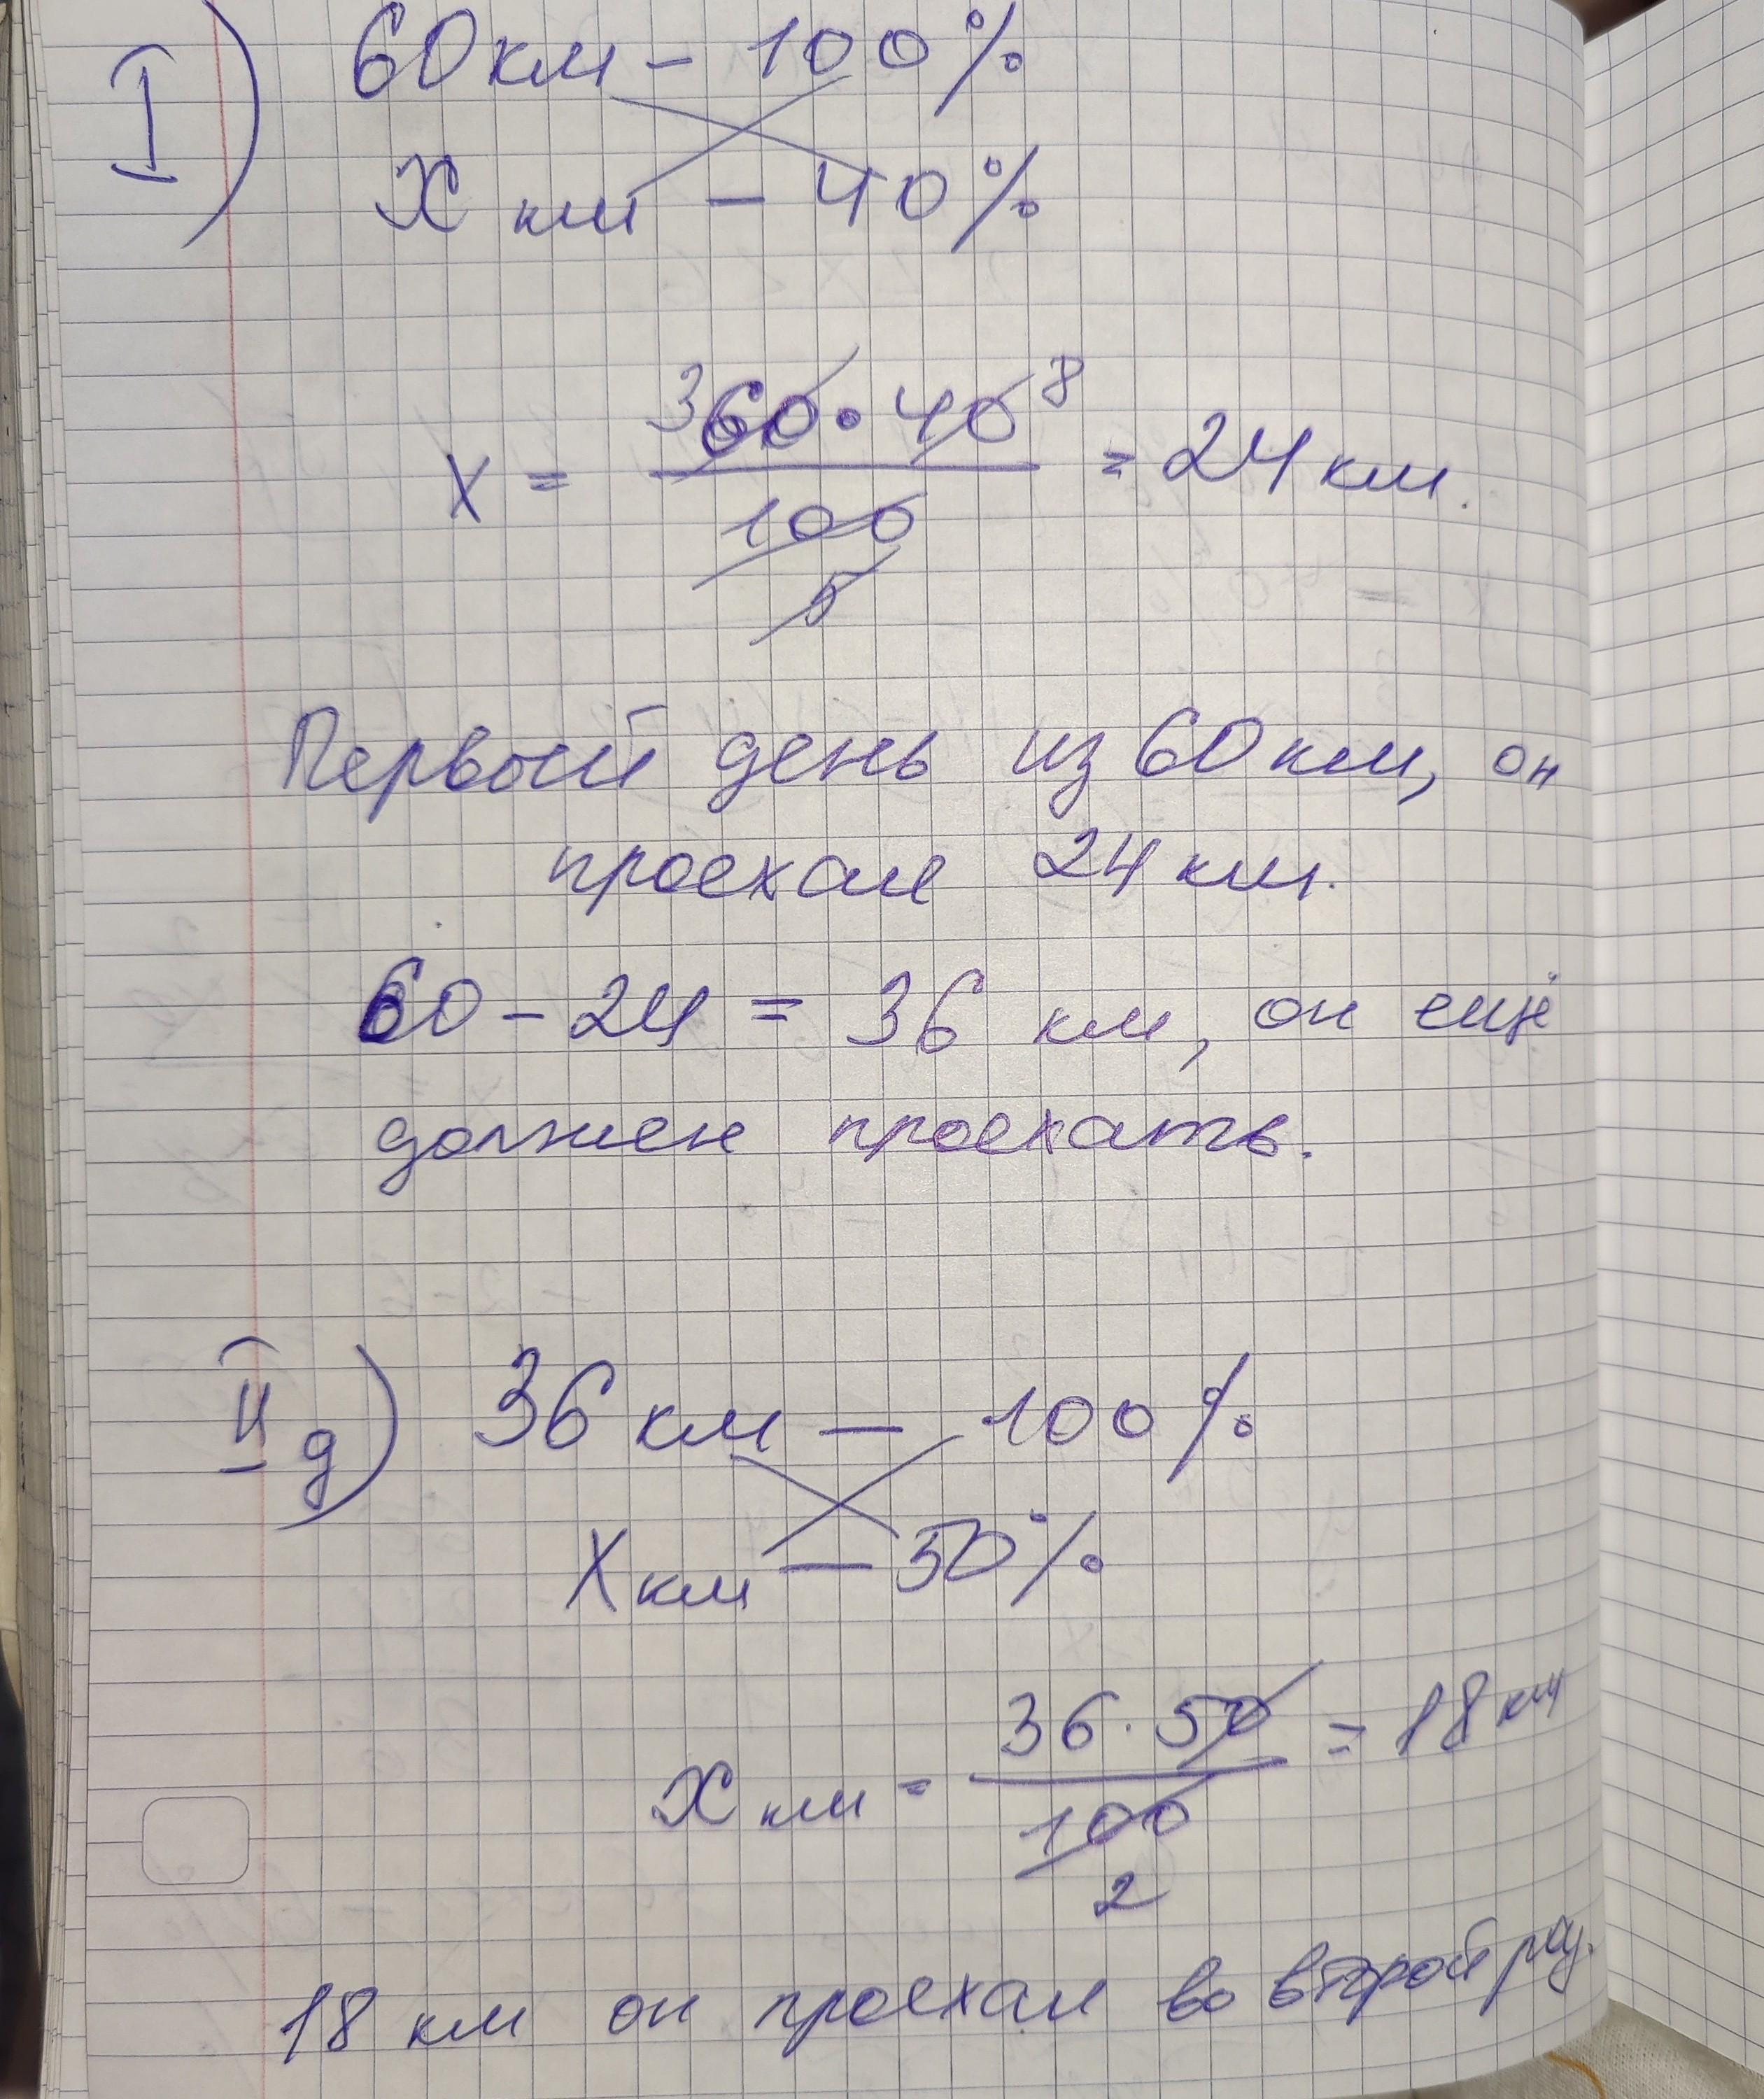 I) 60 км – 100%
х км – 40%
х = 3 60 · 40 8 / 100 5 = 24 км.
Первый день из 60 км, он
проехал 24 км.
60 – 24 = 36 км, он ещё
должен проехать.
II д) 36 км – 100%
х км – 50%
х км = 36 · 50 / 100 2 = 18 км
18 км он проехал во второй раз.